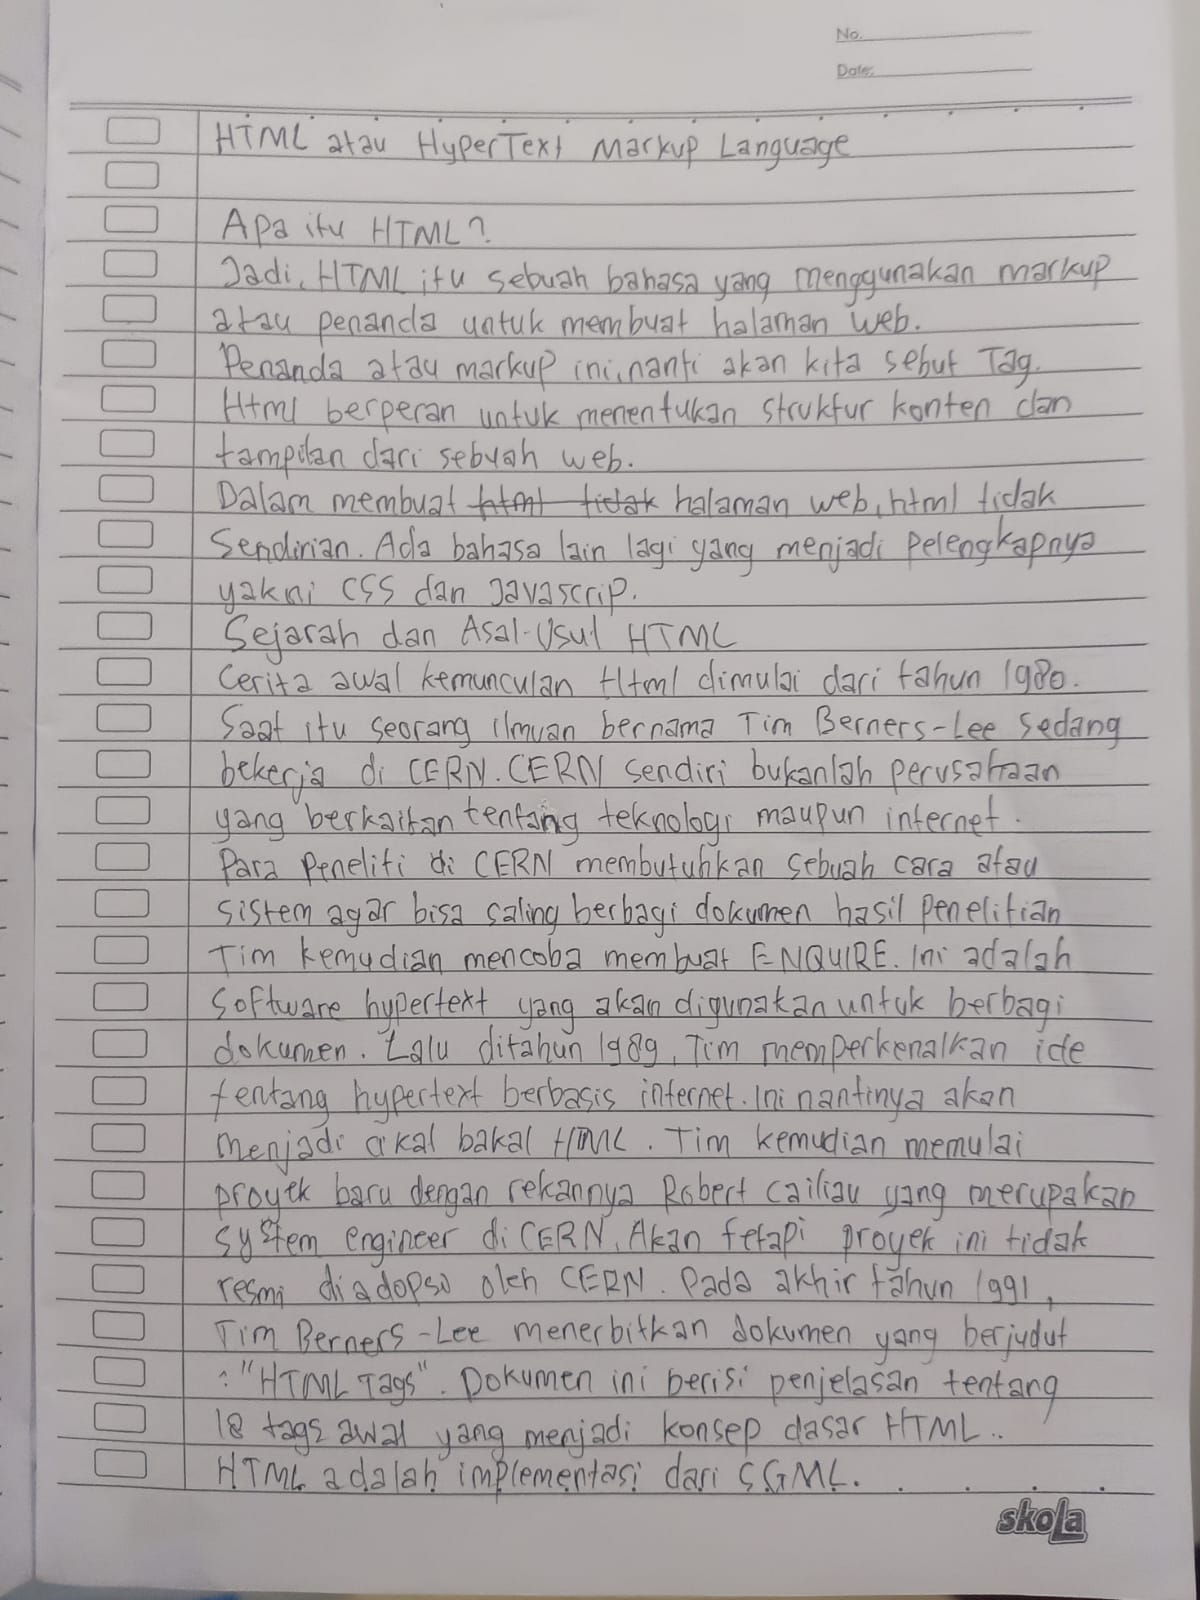 No.
Date:
HTML atau HyperText Markup Language
Apa itu HTML?
Jadi, HTML itu sebuah bahasa yang menggunakan markup
atau penanda untuk membuat halaman web.
Penanda atau markup ini, nanti akan kita sebut Tag.
Html berperan untuk menentukan struktur konten dan
tampilan dari sebuah web.
Dalam membuat html tidak halaman web, html tidak
Sendirian. Ada bahasa lain lagi yang menjadi pelengkapnya
yakni CSS dan Javascrip.
Sejarah dan Asal-Usul HTML
Cerita awal kemunculan Html dimulai dari tahun 1980.
Saat itu seorang ilmuan bernama Tim Berners-Lee sedang
bekerja di CERN. CERN sendiri bukanlah perusahaan
yang berkaitan tentang teknologi maupun internet.
Para Peneliti di CERN membutuhkan sebuah cara atau
sistem agar bisa saling berbagi dokumen hasil penelitian
Tim kemudian mencoba membuat ENQUIRE. Ini adalah
Software hypertext yang akan digunakan untuk berbagi
dokumen. Lalu ditahun 1989, Tim memperkenalkan ide
tentang hypertext berbasis internet. Ini nantinya akan
menjadi cikal bakal HTML. Tim kemudian memulai
proyek baru dengan rekannya Robert Cailiau yang merupakan
system engineer di CERN. Akan tetapi proyek ini tidak
resmi diadopsi oleh CERN. Pada akhir tahun 1991,
Tim Berners-Lee menerbitkan dokumen yang berjudut
: "HTML Tags". Dokumen ini berisi penjelasan tentang
18 tags awal yang menjadi konsep dasar HTML..
HTML adalah implementasi dari SGML.
skola